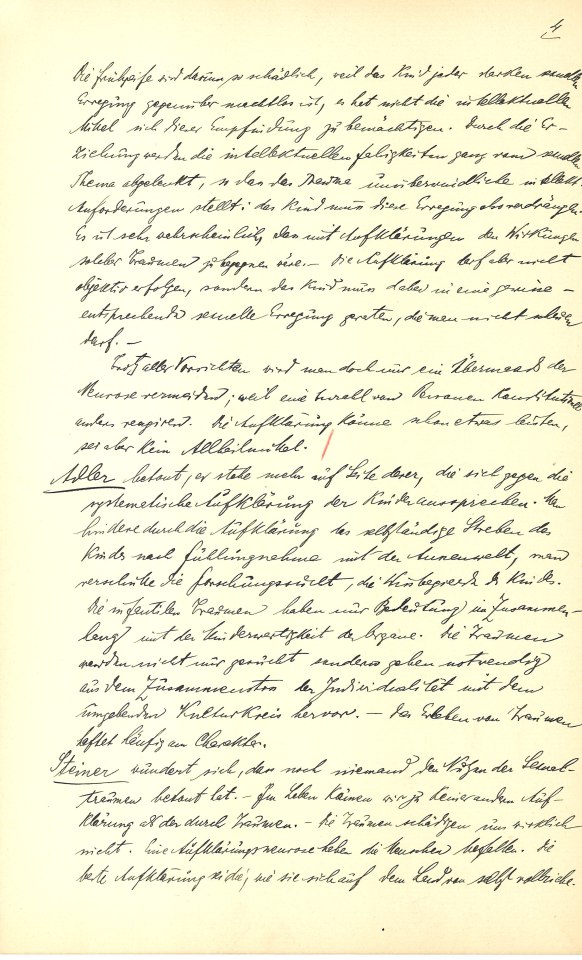 4
Die Frühreife sei darum so schädlich, weil das Kind jeder starken sexuellen
Erregung gegenüber machtlos ist, es hat nicht die intellektuellen
Mittel sich dieser Empfindung zu bemächtigen. Durch die Er-
ziehung werden die intellektuellen Fähigkeiten ganz vom sexuellen
Thema abgelenkt, so das das Trauma unüberwindliche intellekt.
Anforderungen stellt: das Kind muss diese Erregung also verdrängen.
Es ist sehr wahrscheinlich, dass mit Aufklärungen den Wirkungen
solcher Traumen zu begegnen wäre. — Die Aufklärung darf aber nicht
objektiv erfolgen, sondern das Kind muss dabei in eine gewisse —
entsprechende sexuelle Erregung geraten, die man nicht scheuen
darf. —
Trotz aller Vorsichten wird man doch nur ein Übermaass der
Neurose vermeiden; weil eine Anzahl von Personen konstitutionell
anders reagiren. Die Aufklärung könne schon etwas leisten,
sei aber kein Allheilmittel.
Adler betont, er stehe mehr auf Seite derer, die sich gegen die
systematische Aufklärung der Kinder aussprechen. Man
hindere durch die Aufklärung das selbständige Streben des
Kindes nach Fühlungnahme mit der Aussenwelt, man
verschütte die Forschungssucht, die Wissbegierde des Kindes.
Die infantilen Traumen haben nur Bedeutung im Zusammen-
hang mit der Minderwertigkeit der Organe. Die Traumen
werden nicht nur gesucht sondern gehen notwendig
aus dem Zusammenstoss der Individualität mit dem
umgebenden Kulturkreis hervor. — Das Erleben von Traumen
haftet häufig am Charakter.
Steiner wundert sich, dass noch niemand den Nutzen der Sexual-
traumen betont hat. — Im Leben kämen wir zu keiner andern Auf-
klärung als der durch Traumen. — Die Traumen schädigen uns wirklich
nicht. Eine Aufklärungsneurose habe die Menschen befallen. Die
beste Aufklärung sei die, wie sie sich auf dem Land von selbst vollziehe.